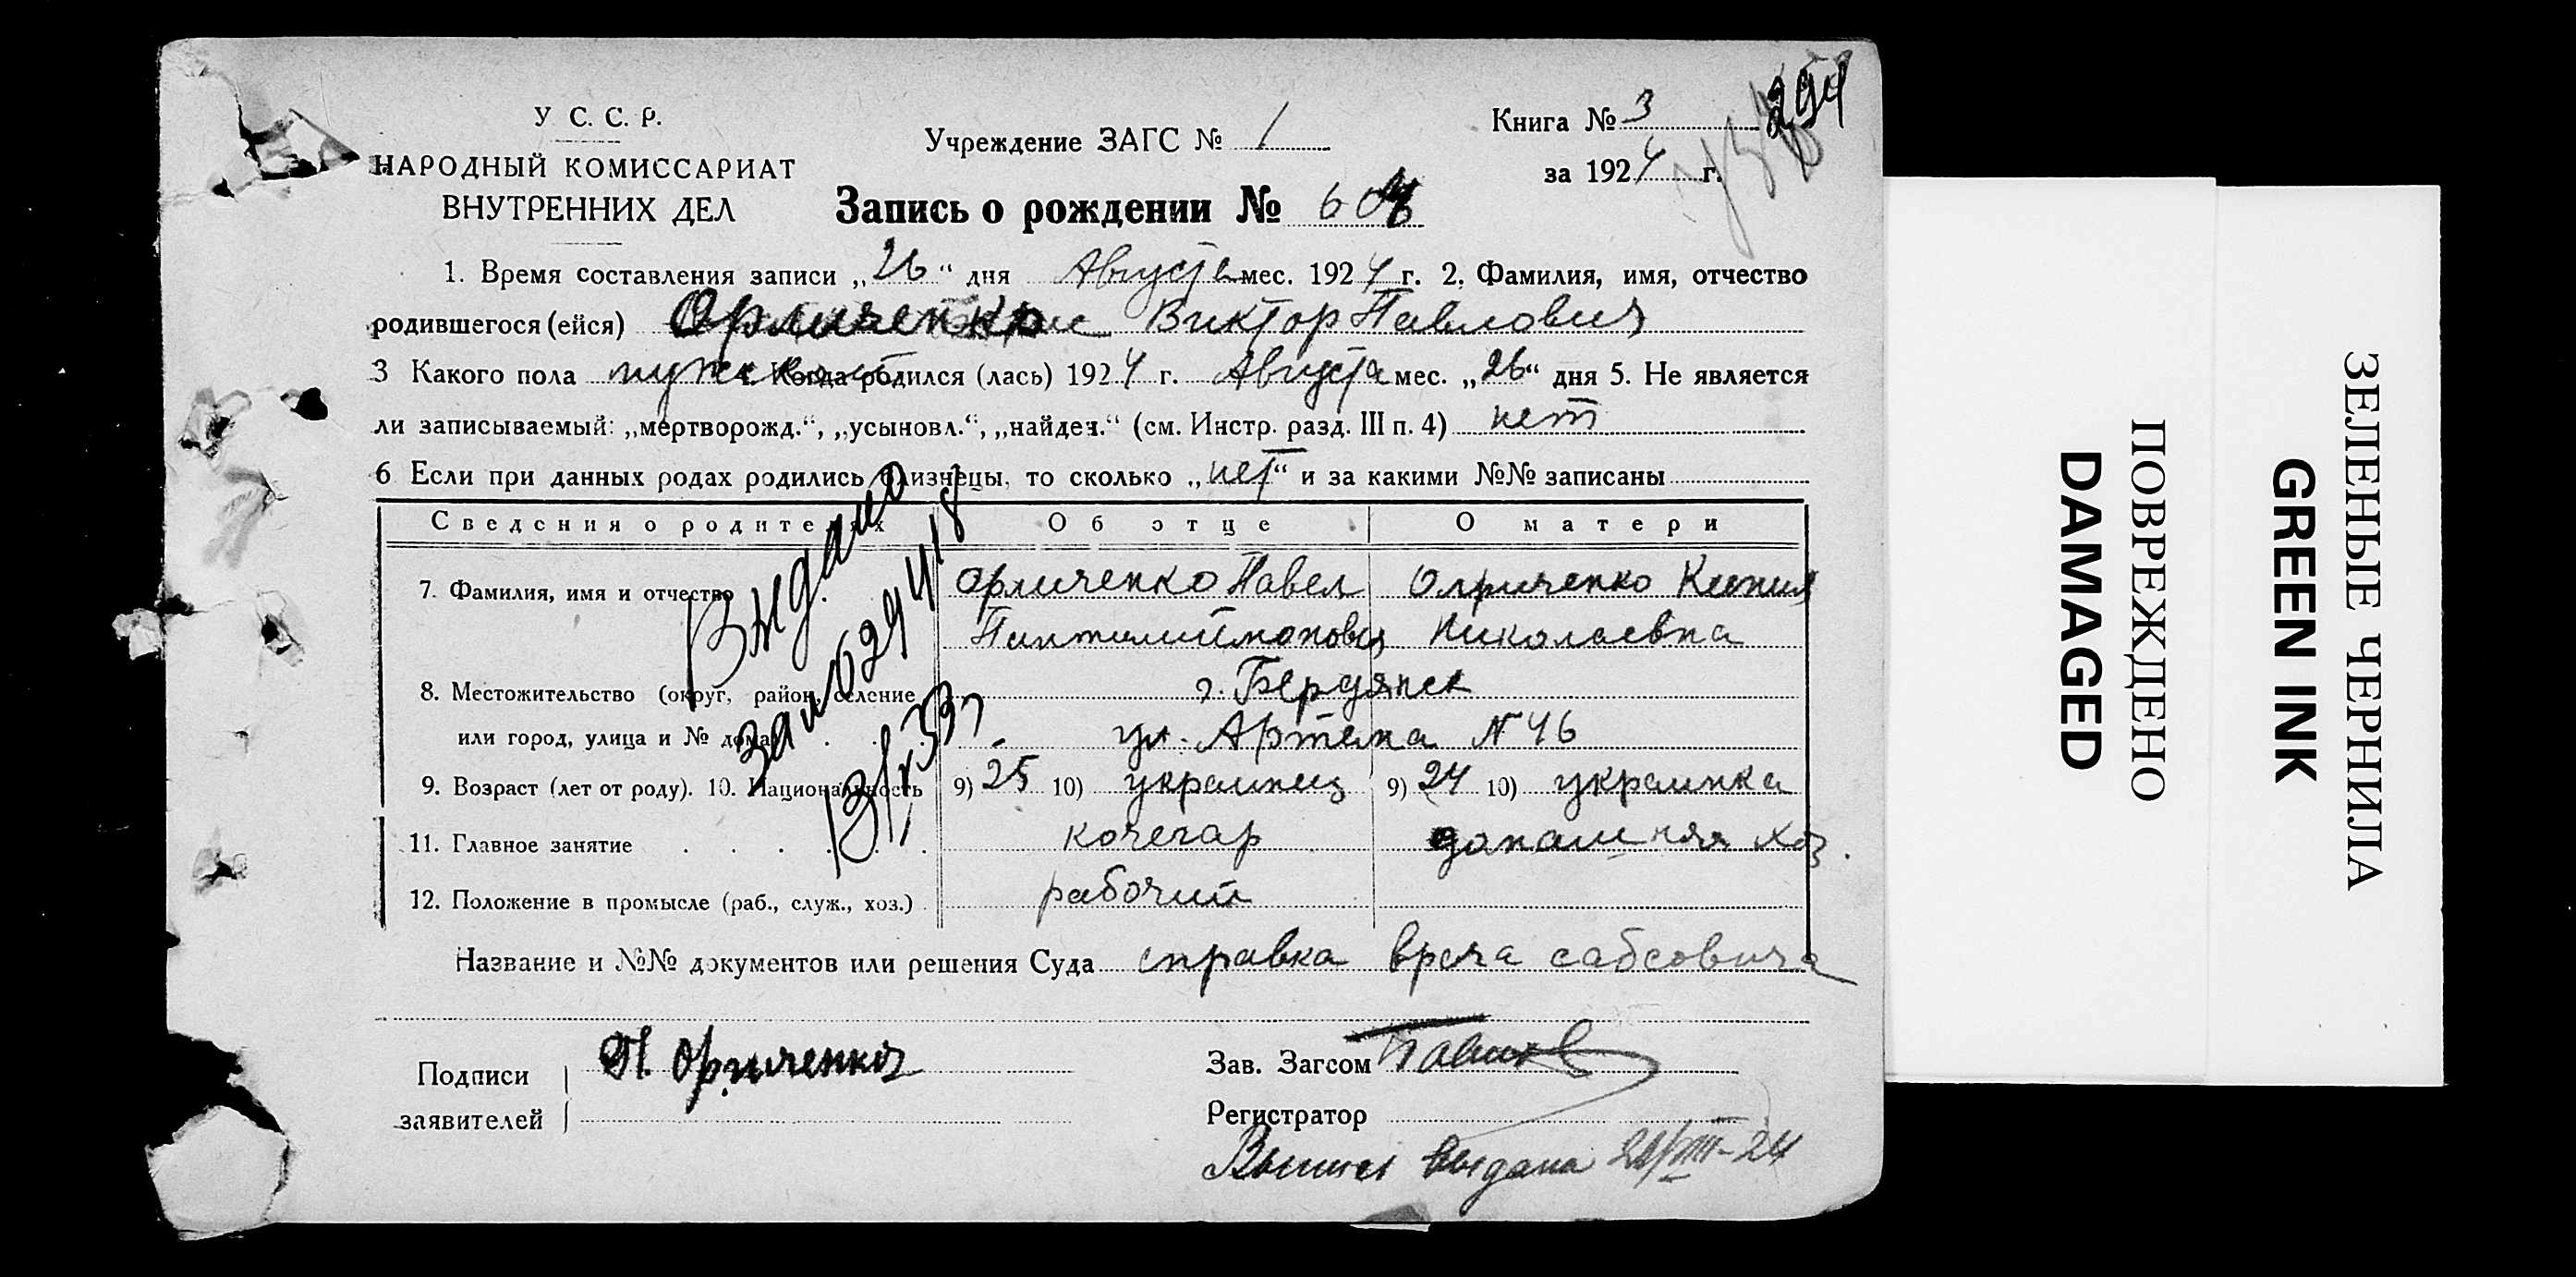 У С. С. Р.
НАРОДНЫЙ КОМИССАРИАТ
ВНУТРЕННИХ ДЕЛ
Учреждение ЗАГС № 1
Книга № 3
294
за 1924 г.
Запись о рождении № 604
1. Время составления записи „26“ дня Августа мес. 1924 г. 2. Фамилия, имя, отчество
родившегося (ейся) Орличенко Виктор Павлович
3 Какого пола мужской 4. Когда родился (лась) 1924 г. Августа мес. „26“ дня 5. Не является
ли записываемый: „мертворожд.“, „усыновл.“, „найден.“ (см. Инстр. разд. III п. 4) нет
6 Если при данных родах родились близнецы, то сколько „нет“ и за какими №№ записаны
Сведения о родителях Об отце О матери
7. Фамилия, имя и отчество Орличенко Павел Олриченко Ксения
Пантилиймонович Николаевна
8. Местожительство (округ, район, селение г. Бердянск
или город, улица и № дома) ул. Артема N 46
9. Возраст (лет от роду). 10. Национальность 9) 25 10) украинец 9) 24 10) украинка
11. Главное занятие кочегар домашняя хоз.
12. Положение в промысле (раб., служ., хоз.) рабочий
Видано
Название и №№ документов или решения Суда справка врача сабсовича
Подписи П. Орличенко
заявителей
Зав. Загсом
Регистратор
Выпись выдана
ПОВРЕЖДЕНО
DAMAGED
ЗЕЛЕНЫЕ ЧЕРНИЛА
GREEN INK